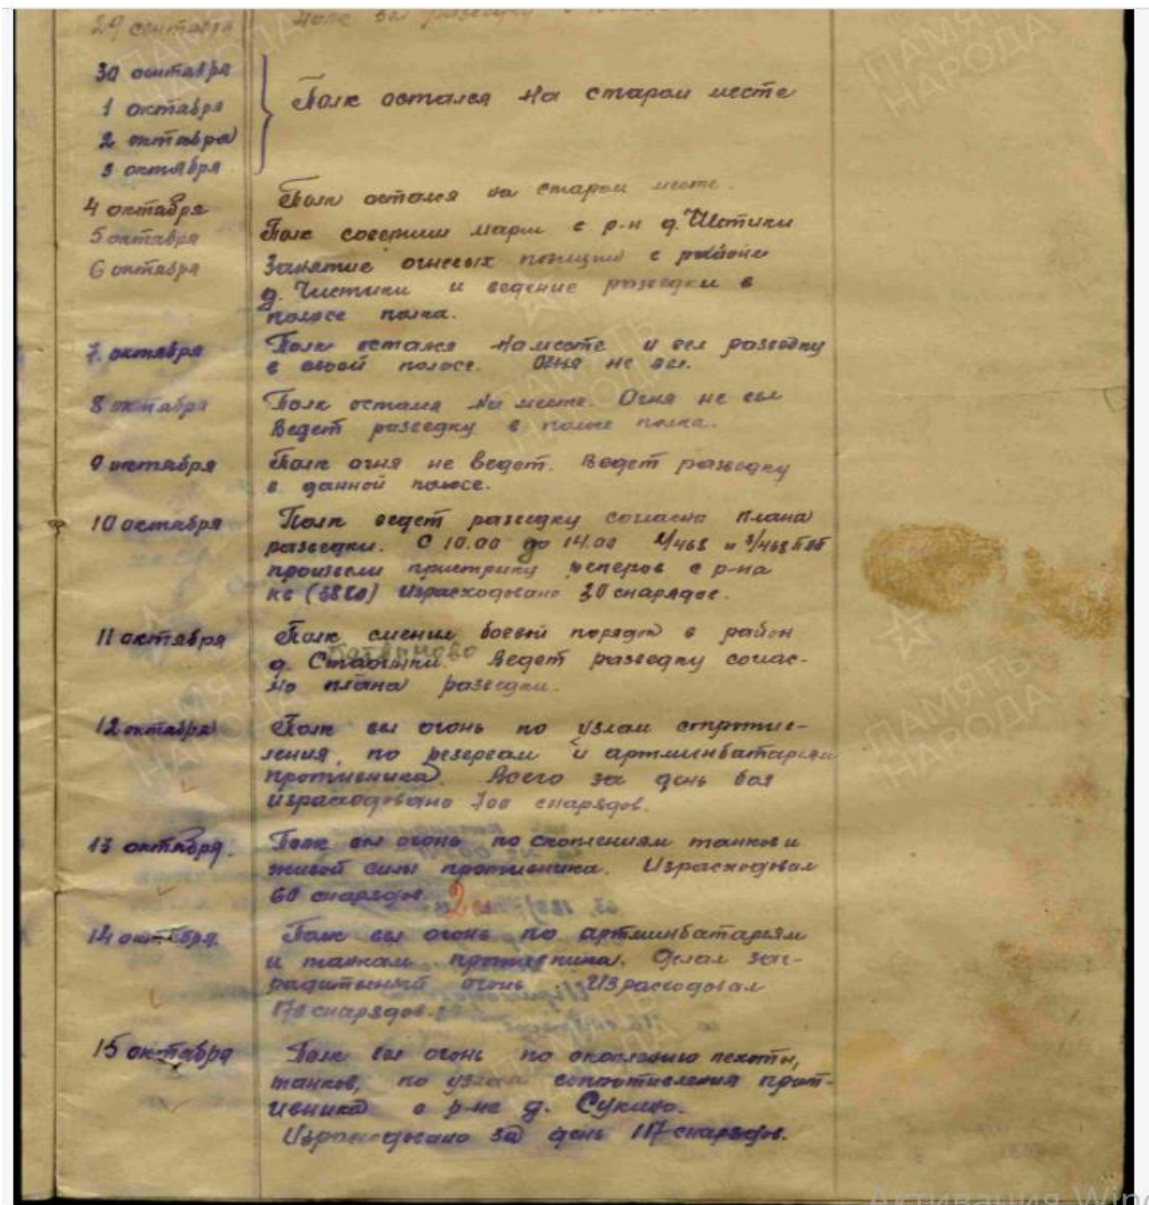 29 сентября Полк вел разведку
30 сентября
1 октября Полк остался на старом месте
2 октября
3 октября
4 октября Полк остался на старом месте.
5 октября Полк совершил марш в р-н д. Чистики
6 октября Занятие огневых позиций в районе
д. Чистики и ведение разведки в
полосе полка.
7 октября Полк остался на месте и вел разведку
в своей полосе. Огня не вел.
8 октября Полк остался на месте. Огня не вел
Ведет разведку в полосе полка.
9 октября Полк огня не ведет. Ведет разведку
в данной полосе.
10 октября Полк ведет разведку согласно плана
разведки. С 10.00 до 14.00 2/468 и 3/468
произвели пристрелку реперов в р-на
кв (3880) Израсходовано 30 снарядов.
11 октября Полк сменил боевой порядок в район
д. Ведет разведку соглас-
но плана разведки.
12 октября Полк вел огонь по узлам сопротив-
ления, по резервам и артминбатареям
противника. Всего за день боя
израсходовано 700 снарядов.
13 октября. Полк вел огонь по скоплениям танков и
живой силы противника. Израсходовал
60 снарядов. 2
14 октября. Полк вел огонь по артминбатареям
и танкам противника. Делал заг-
радительный огонь. Израсходовал
170 снарядов.
15 октября Полк вел огонь по скоплению пехоты,
танков, по узлам сопротивления прот-
ивника в р-не д. Сукино.
Израсходовано за день 117 снарядов.
ПАМЯТЬ
НАРОДА
ПАМЯТЬ
НАРОДА
Активация Wind